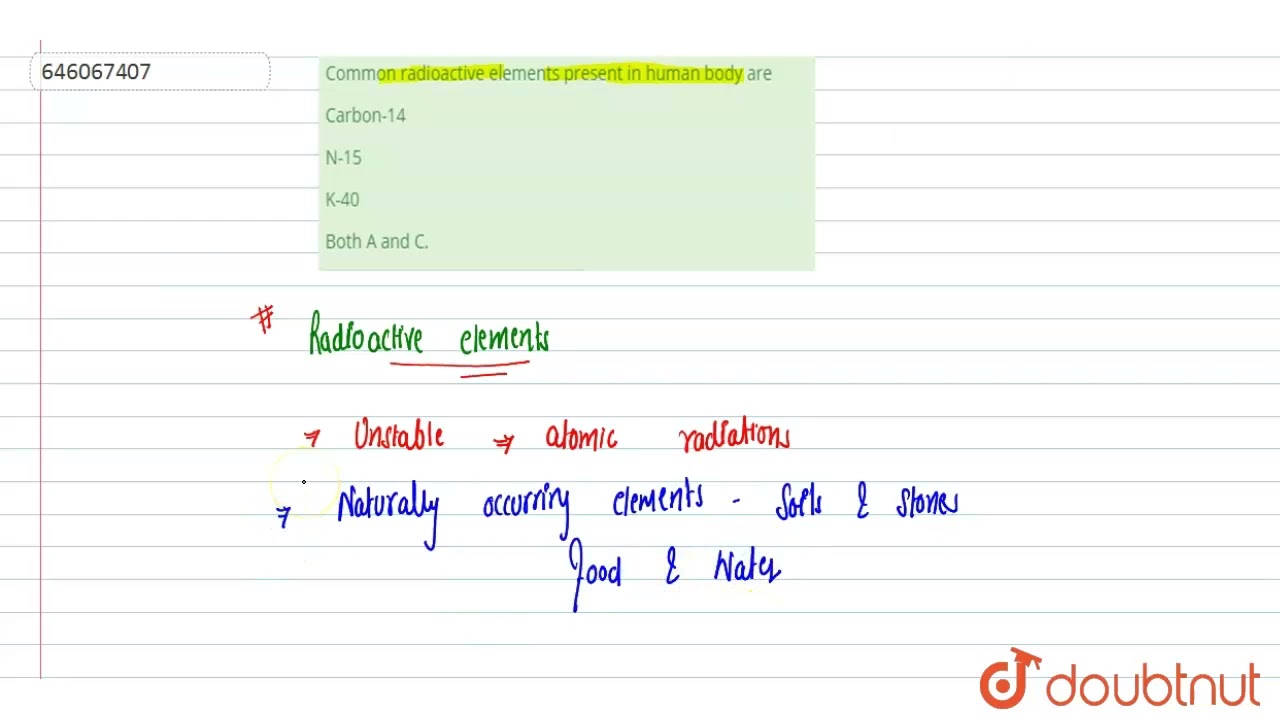 646067407
Common radioactive elements present in human body are
Carbon-14
N-15
K-40
Both A and C.
# Radioactive elements
→ Unstable ⇒ atomic radiations
⇒ Naturally occurring elements - Soils & Stones
Food & Water
doubtnut